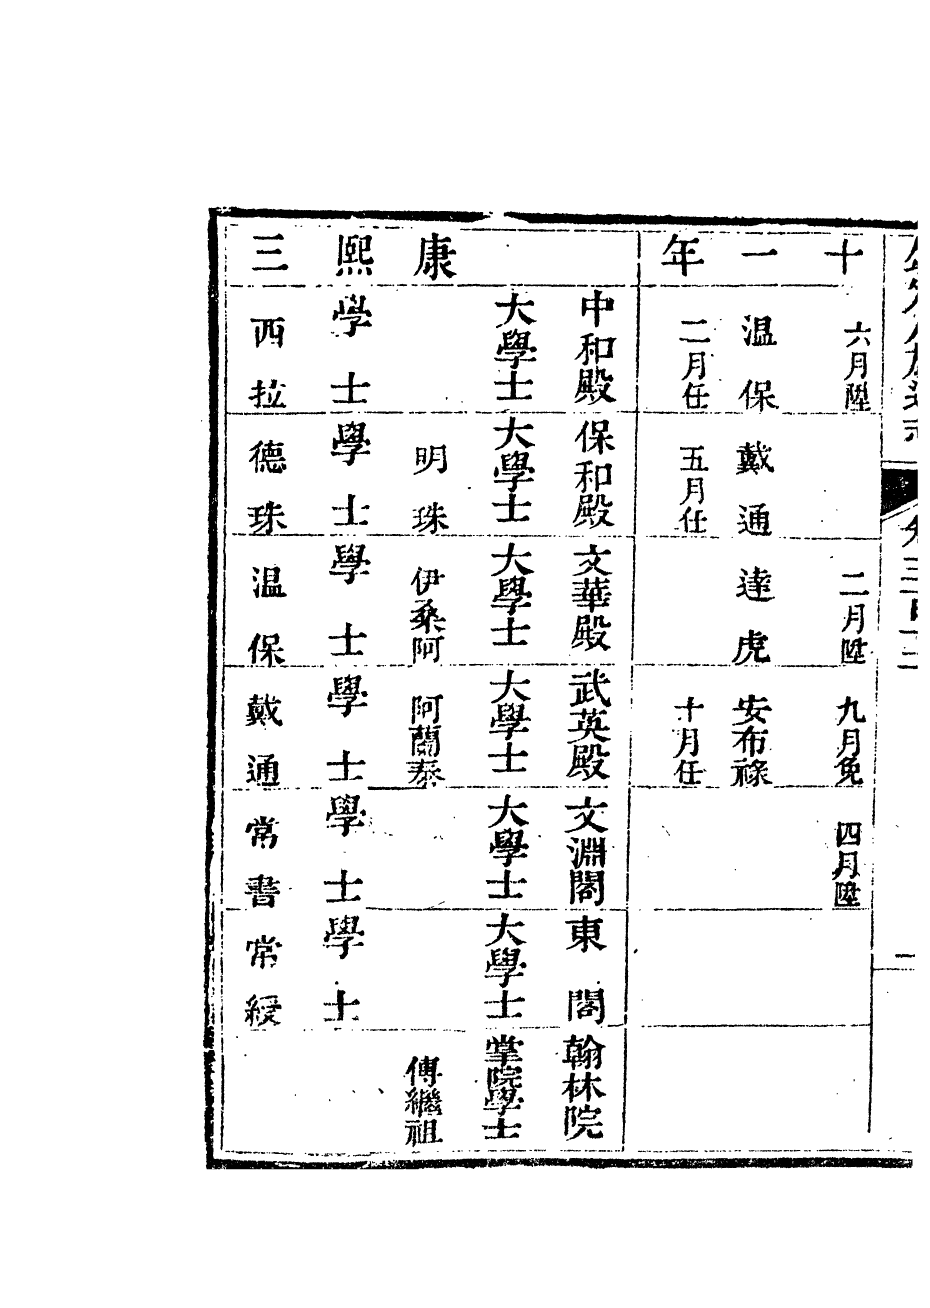 十 六月陞 二月陞 九月免 四月陞
一 温保 戴通 達虎 安布祿
年 二月任 五月任 十月任
中和殿 保和殿 文華殿 武英殿 文淵閣 東閣 翰林院
大學士 大學士 大學士 大學士 大學士 大學士 掌院學士
康 明珠 伊桑阿 阿蘭泰 傅繼祖
熙 學士 學士 學士 學士 學士 學士
三 西拉 德珠 温保 戴通 常書 常綬